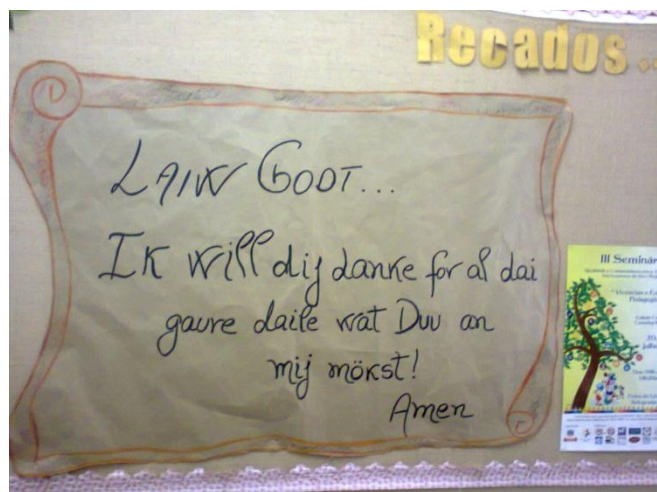 Recados...
LAIW GODT...
Ik will dij danke for al dai
gaure daile wat Duu an
mij mökst!
Amen
III Seminár